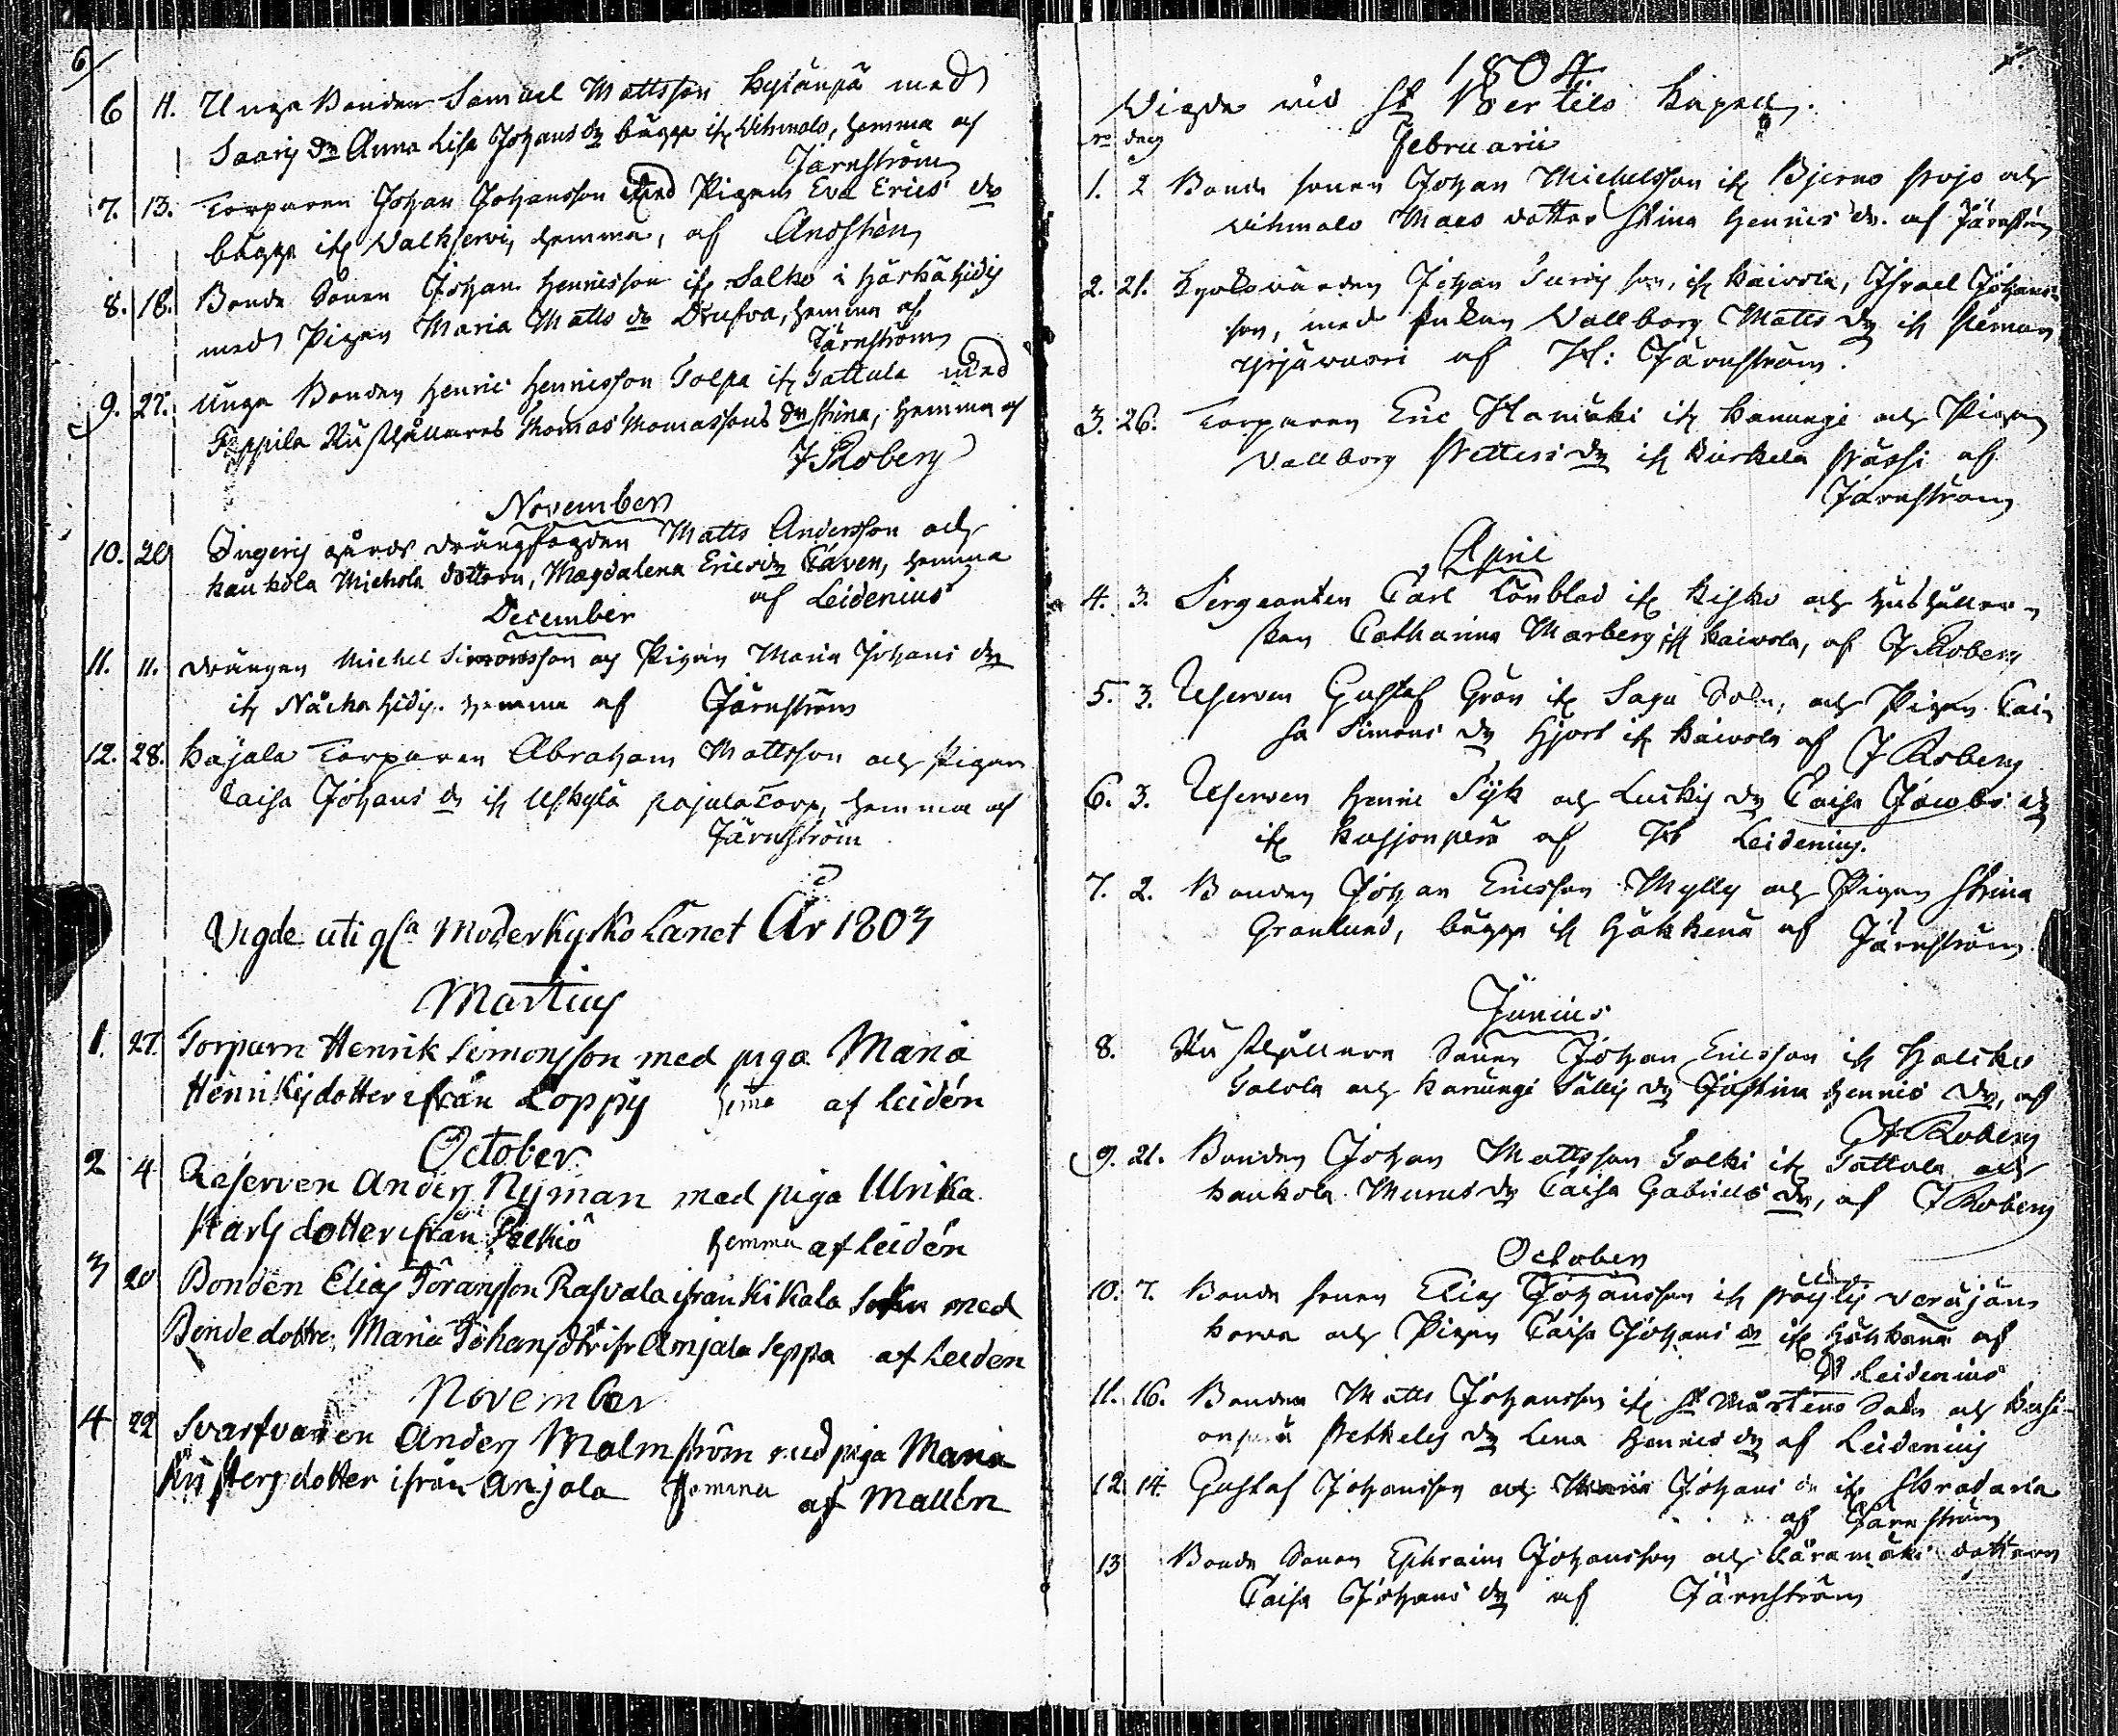 6
6 11. Unga Bonden Samuel Mattsson Kylänpä med
Saaris dr Anna Lisa Johans dr bägge ifr Vihmalo, hemma af
Järnström
7. 13. Torparen Johan Johansson med Pigan Eva Erics dr
bägge ifr Valkjervi, hemma, af Anosthén
8. 18. Bonde Sonen Johan Henricsson ifr Salko i Härkähidis
med Pigan Maria Matts dr hemma af
Järnström
9. 27. Unga Bonden Henric Henricsson Tolpa ifr Tattula med
Rusthållares Thomas Thomassons dr Stina, hemma af
J Roberg
November
10. 20 Ingeris gårds drängfogden Matts Andersson och
Kaukola Michola dottern, Magdalena Ericsdr hemma
af Leidenius
December
11. 11. Drängen Michel Simonsson och Pigan Maria Johans dr
ifr hemma af Järnström
12. 28. Kajala Torparen Abraham Mattsson och Pigan
Caisa Johans dr ifr Uskylä pajala torp, hemma af
Järnström
Vigde uti Moderkyrko Länet År 1803
Martius
1. 27. Torparn Henrik Simonsson med piga Maria
Henriksdotter ifrån Loppis hema af Leidén
October
2 4 Reserven Anders Nyman med piga Ulrika
Karlsdotter ifrån hemma af Leidén
3 20 Bonden Elias Göransson Rasvala ifrån Kikala Sokn med
Bondedottr. Maria Johansdtr ifr Anjala Seppä af Leiden
November
4 22 Svarfvaren Anders Malmström med piga Maria
dotter ifrån Anjala hemma af Mallén
1804
Vigde vid St Bertils Kapell.
No dag
Februarii
1. 2 Bonde sonen Johan Michelsson ifr Bjerno och
Vihmalo Maes dotter Stina Henrics dr. af Järnström
2. 21. Kyrkovärden Johan son, ifr Kaivola, Israel Johans-
son, med Enkan Vallborg Matts dr ifr
Yrjännori af Järnström.
3. 26. Torparen Eric ifr Kanungi och Pigan
Vallborg Petters dr ifr Kurkela Prässi af
Järnström
April
4. 3. Sergeanten Carl Lönblad ifr Kisko och Hushåller-
skan Catharina Marberg ifr Kaivola, af J Roberg
5. 3. Reserven Gustaf Grön ifr Sagu Sokn, och Pigan Cai-
sa Simons dr Hjort ifr Kaivola af J Roberg
6. 3. Reserven Henric Sijk och Luckis dr Caisa Jacobs dr
ifr af Leidenius.
7. 2. Bonden Johan Ericsson Mylly och Pigan Stina
Granlund, bägge ifr Häkkenä af Järnström
Junius
8. Rusthållare Sonen Johan Ericsson ifr
Talola och Kanungi Sällis dr Justina Henrics dr, af
J Roberg
9. 21. Bonden Johan Mattsson Tolki ifr Tattula och
Kaukola Murus dr Caisa Gabriels dr, af J Roberg
October
10. 7. Bonde sonen Elias Johansson ifr Veräjän-
korva och Pigan Caisa Johans dr ifr Häkkänä af
Leidenius
11. 16. Bonden Matts Johansson ifr St Mårtens Sokn och
Lena Henrics dr af Leidenius
12 14. Gustaf Johansson och Maria Johans dr ifr
af Järnström
13 Bonde Sonen Ephraim Johansson och dottern
Caisa Johans dr af Järnström